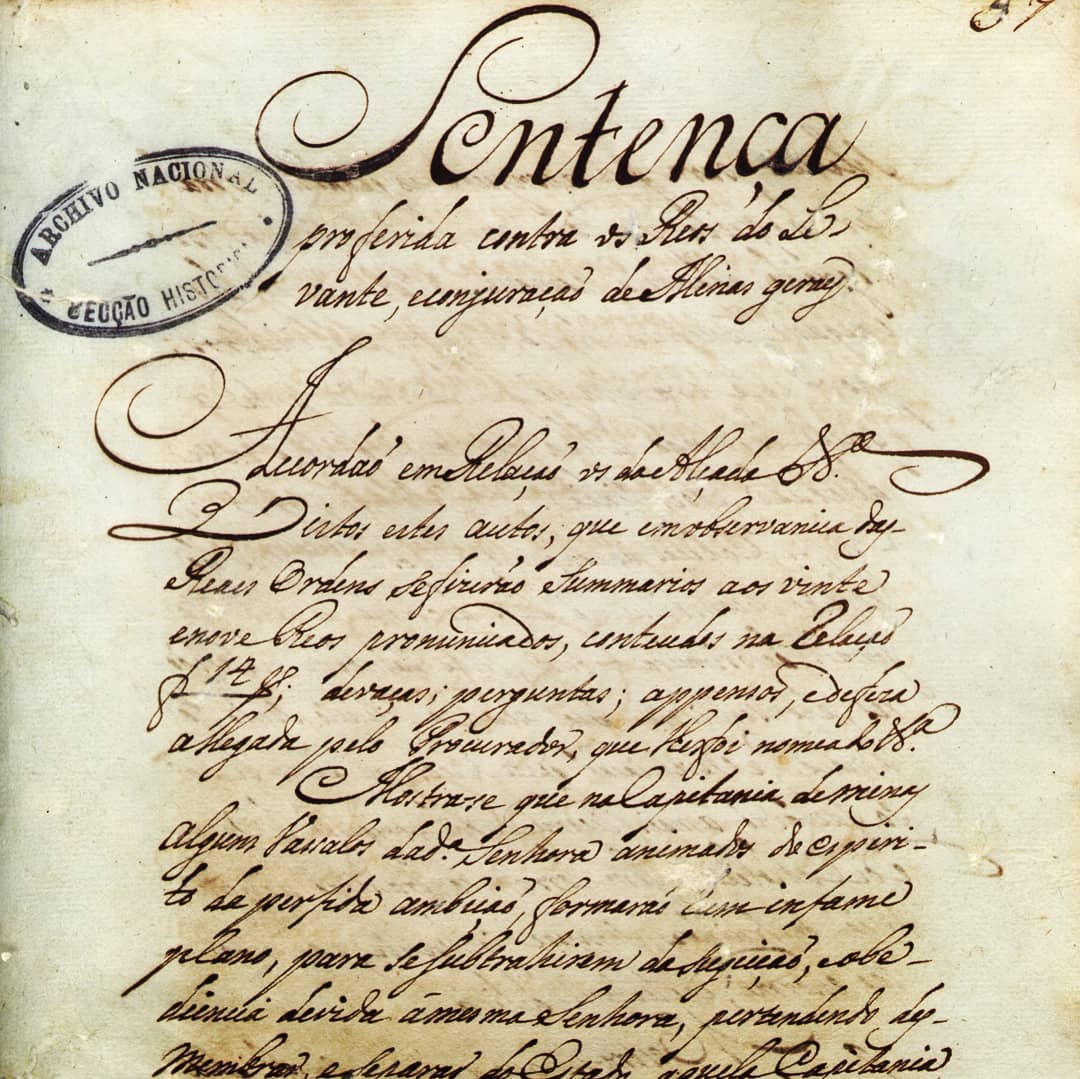 57
Sentença
proferida contra os Reos do Le-
vante, e conjuração de Minas geraes.
ARCHIVO NACIONAL
SECÇÃO HISTORICA
Accordaõ em Relaçaõ os da Alçada &.ª
Vistos estes autos, que em observancia das
Reaes Ordens se fizeraõ Summarios aos vinte
e nove Reos pronunciados, conteudos na Relaçaõ
f 14 devaças; perguntas; appensos, e defeza
allegada pelo Procurador, que lhe foi nomeado &.ª
Mostra-se que na Capitania de minas
alguns Vassalos da d.ª Senhora animados do espiri-
to de perfida ambiçaõ, formaraõ hum infame
plano, para se subtrahirem da sugeiçaõ, e obe-
diencia devida á mesma Senhora, pertendendo des-
membrar, e separar do Estado aquela Capitania